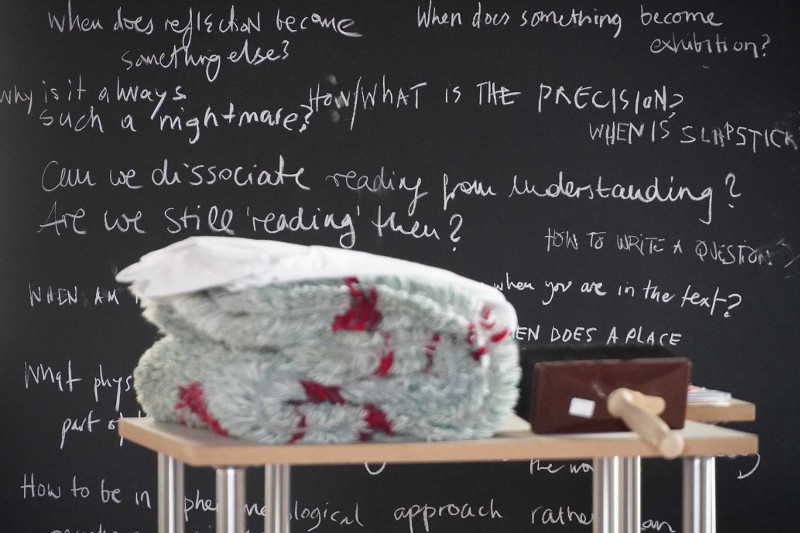 When does reflection become
something else?
When does something become
exhibition?
why is it always
such a nightmare?
HOW/WHAT IS THE PRECISION?
WHEN IS SLAPSTICK
Can we dissociate reading from understanding?
Are we still 'reading' then?
HOW TO WRITE A QUESTION
WHEN AM
when you are in the text?
EN DOES A PLACE
What phys
part of
the wo
How to be in phe logical approach rathe an